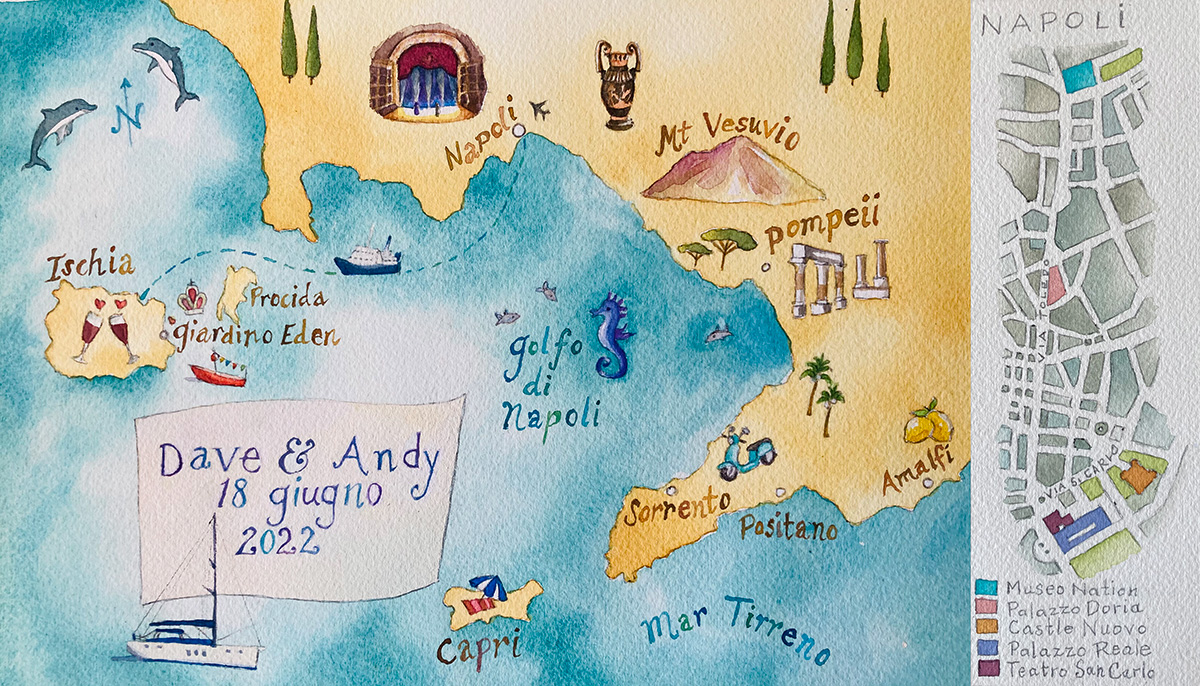 N
Napoli
Mt Vesuvio
Pompeii
Ischia
Procida
giardino Eden
golfo
di
Napoli
Dave & Andy
18 giugno
2022
Sorrento
Positano
Amalfi
Capri
Mar Tirreno
NAPOLI
VIA TOLEDO
VIA S. CARLO
Museo Nation
Palazzo Doria
Castle Nuovo
Palazzo Reale
Teatro San Carlo